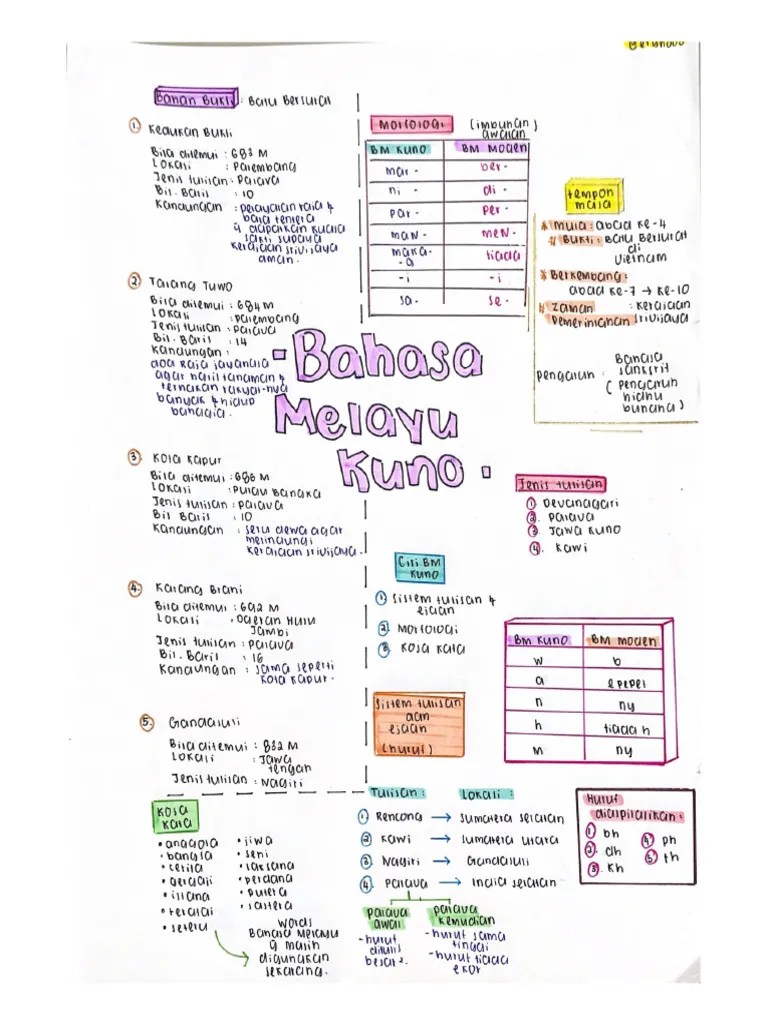 Bahan Bukti : Batu Bersurat
① Kedukan Bukit
Bila ditemui : 683 M
Lokasi : Palembang
Jenis tulisan : Palava
Bil. Baris : 10
Kandungan : pelayaran raja &
bala tentera
yg dapatkan kuasa
sakti supaya
kerajaan srivijaya
aman.
② Talang Tuwo
Bila ditemui : 684 M
Lokasi : Palembang
Jenis tulisan : Palava
Bil. Baris : 14
Kandungan :
doa Raja Jayanasa
agar hasil tanaman &
ternakan rakyat-nya
banyak & hidup
bahagia.
③ Kota Kapur
Bila ditemui : 686 M
Lokasi : Pulau Bangka
Jenis tulisan : Palava
Bil Baris : 10
Kandungan : seru dewa agar
melindungi
kerajaan srivijaya.
④ Karang Brahi
Bila ditemui : 692 M
Lokasi : Daerah Hulu
Jambi
Jenis tulisan : palava
Bil. Baris : 16
Kandungan : sama seperti
kota kapur.
⑤ Gandasuli
Bila ditemui : 832 M
Lokasi : Jawa
tengah
Jenis tulisan : Nagiri
Morfologi (imbuhan awalan)
BM Kuno BM Moden
mar - ber -
ni - di -
par - per -
maN - meN -
maka - tiada
- a
- i - i
sa - se -
tempoh
masa
* Mula : abad ke-4
Bukti : Batu Bersurat
di
Vietnam
* Berkembang :
abad ke-7 → ke-10
Zaman : kerajaan
Pemerintahan srivijaya
pengaruh : Bahasa
sanskrit
(pengaruh
hindu
buddha)
• Bahasa
Melayu
Kuno •
Jenis tulisan
① Devanagari
②. palava
③ Jawa Kuno
④. Kawi
Ciri BM
Kuno
① Sistem tulisan &
ejaan
② Morfologi
③ Kosa kata
BM Kuno BM Moden
w b
a e pepet
n ny
h tiada h
m ng
Sistem tulisan
dan
ejaan
(huruf)
Tulisan : Lokasi :
① Rencong → Sumatera selatan
② Kawi → Sumatera utara
③ Nagiri → Gandasuli
④. Palava → India selatan
palava
awal
- huruf
ditulis
besar².
palava
kemudian
- huruf sama
tinggi
- huruf tiada
ekor
Huruf
diaspirasikan :
① bh
②. dh
③ Kh
④. ph
⑤ th
Kosa
Kata
• anggota
• bangsa
• cerita
• gergaji
• istana
• teratai
• seteru
• jiwa
• seni
• laksana
• perdana
• putera
• sastera
words
Bahasa Melayu
yg masih
digunakan
sekarang.